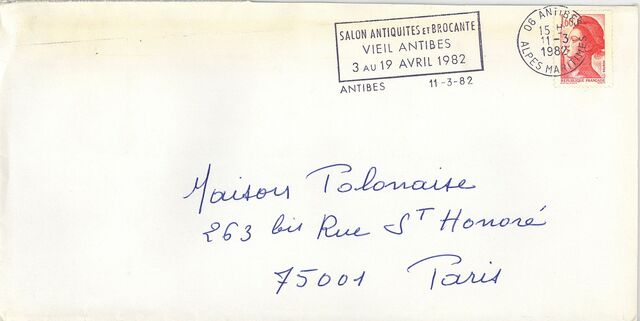 SALON ANTIQUITES ET BROCANTE
VIEIL ANTIBES
3 AU 19 AVRIL 1982
ANTIBES 11-3-82
06 ANTIBES
15 H
11-3
1982
ALPES MARITIMES
REPUBLIQUE FRANÇAISE
Maison Polonaise
263 bis Rue St Honoré
75001 Paris